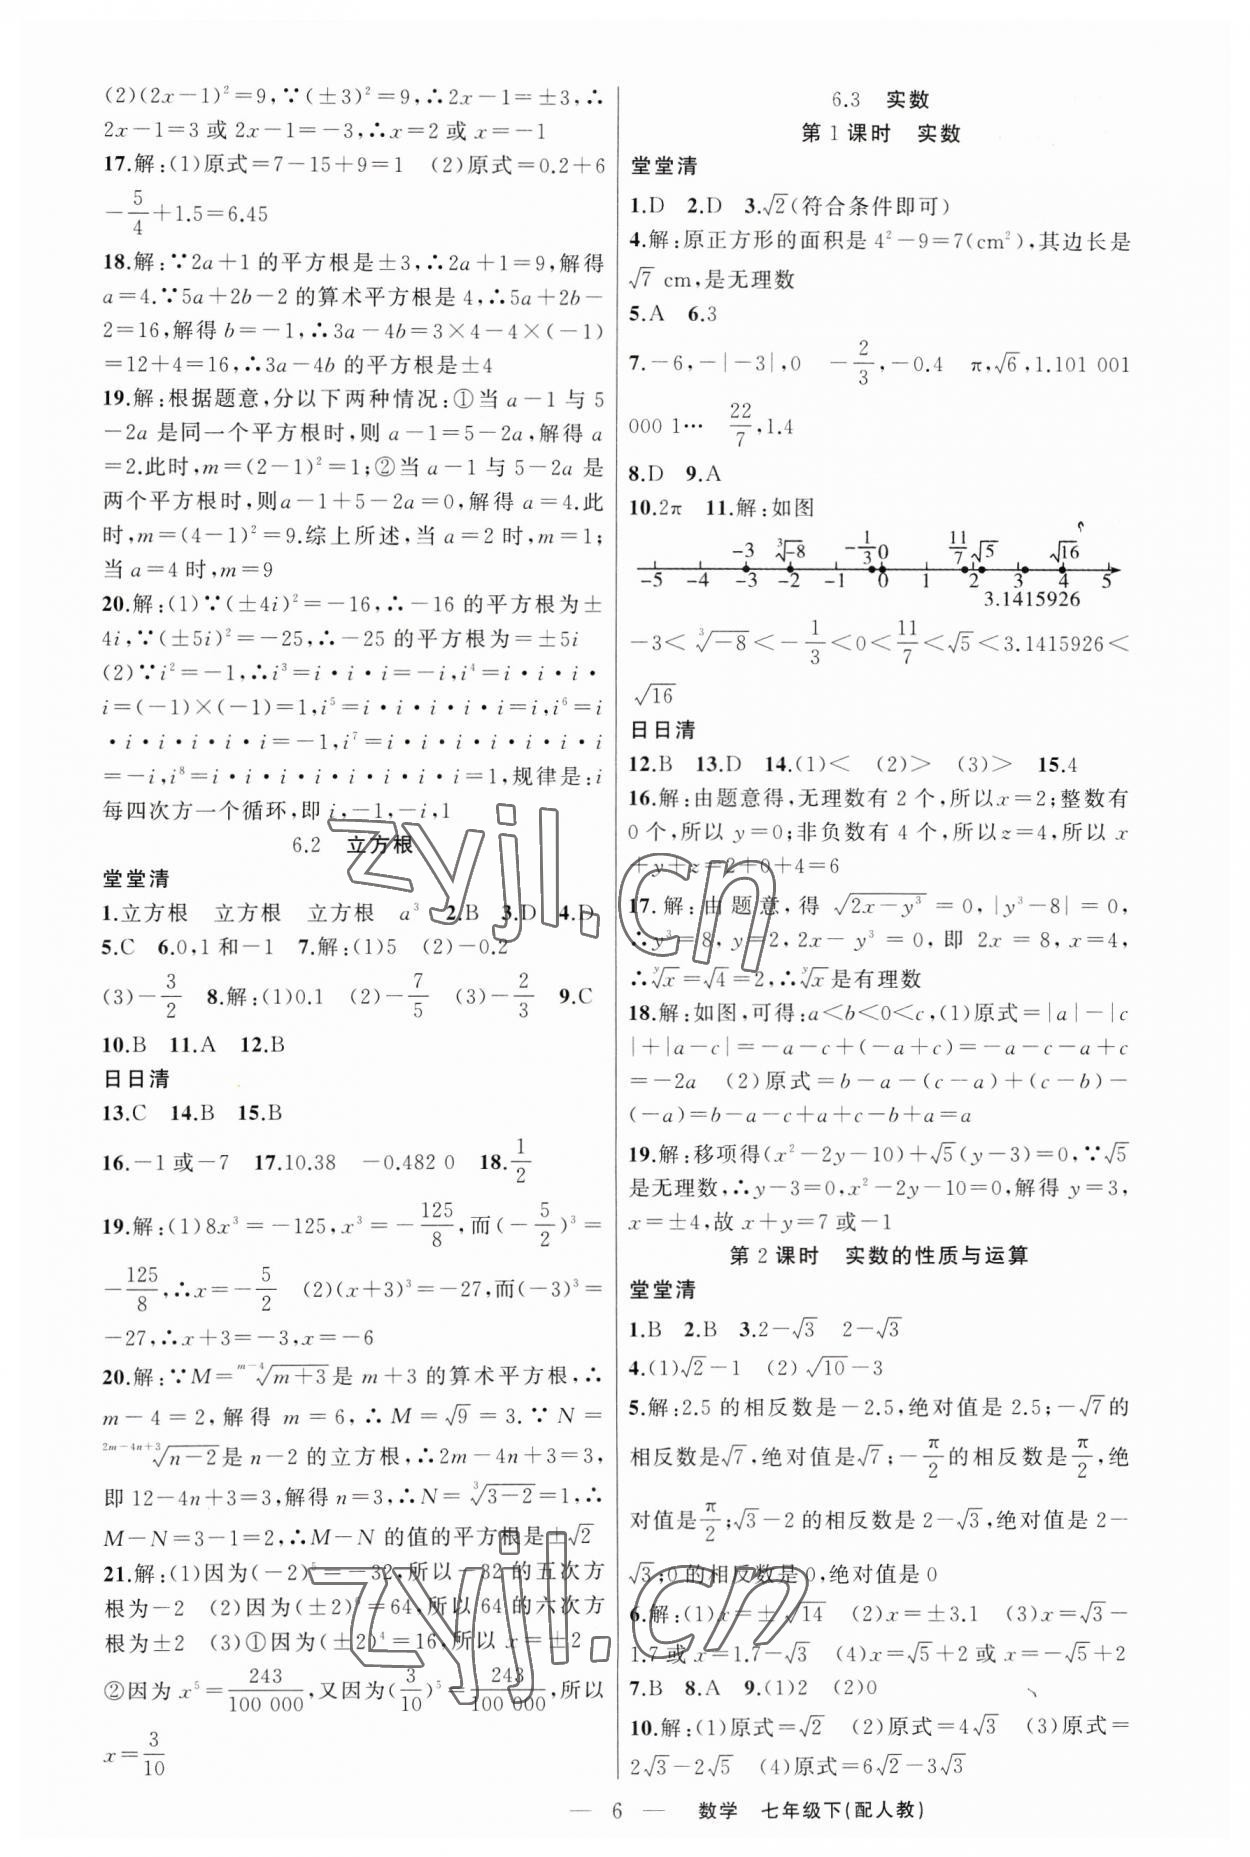 (2)(2x－1)²＝9,∵(±3)²＝9,∴2x－1＝±3,∴
2x－1＝3 或 2x－1＝－3,∴x＝2 或 x＝－1
17.解:(1)原式＝7－15＋9＝1 (2)原式＝0.2＋6
－5/4＋1.5＝6.45
18.解:∵2a＋1 的平方根是±3,∴2a＋1＝9,解得
a＝4.∵5a＋2b－2 的算术平方根是 4,∴5a＋2b－
2＝16,解得 b＝－1,∴3a－4b＝3×4－4×(－1)
＝12＋4＝16,∴3a－4b 的平方根是±4
19.解:根据题意,分以下两种情况:①当 a－1 与 5
－2a 是同一个平方根时,则 a－1＝5－2a,解得 a
＝2.此时,m＝(2－1)²＝1;②当 a－1 与 5－2a 是
两个平方根时,则a－1＋5－2a＝0,解得 a＝4.此
时,m＝(4－1)²＝9.综上所述,当 a＝2 时,m＝1;
当 a＝4时,m＝9
20.解:(1)∵(±4i)²＝－16,∴－16 的平方根为±
4i,∵(±5i)²＝－25,∴－25 的平方根为＝±5i
(2)∵i²＝－1,∴i³＝i・i・i＝－i,i⁴＝i・i・i・
i＝(－1)×(－1)＝1,i⁵＝i・i・i・i・i＝i,i⁶＝i
・i・i・i・i・i＝－1,i⁷＝i・i・i・i・i・i・i
＝－i,i⁸＝i・i・i・i・i・i・i・i＝1,规律是:i
每四次方一个循环,即 i,－1,－i,1
6.2 立方根
堂堂清
1.立方根 立方根 立方根 a³ 2.B 3.D 4.D
5.C 6.0,1 和－1 7.解:(1)5 (2)－0.2
(3)－3/2 8.解:(1)0.1 (2)－7/5 (3)－2/3 9.C
10.B 11.A 12.B
日日清
13.C 14.B 15.B
16.－1或－7 17.10.38 －0.482 0 18.1/2
19.解:(1)8x³＝－125,x³＝－125/8,而(－5/2)³＝
－125/8,∴x＝－5/2 (2)(x＋3)³＝－27,而(－3)³＝
－27,∴x＋3＝－3,x＝－6
20.解:∵M＝ᵐ⁻⁴√(m＋3)是 m＋3 的算术平方根,∴
m－4＝2,解得 m＝6,∴M＝√9＝3.∵N＝
²ᵐ⁻⁴ⁿ⁺³√(n－2)是 n－2 的立方根,∴2m－4n＋3＝3,
即 12－4n＋3＝3,解得 n＝3,∴N＝³√(3－2)＝1,∴
M－N＝3－1＝2,∴M－N 的值的平方根是±√2
21.解:(1)因为(－2)⁵＝－32,所以－32 的五次方
根为－2 (2)因为(±2)⁶＝64,所以 64 的六次方
根为±2 (3)①因为(±2)⁴＝16,所以 x＝±2
②因为 x⁵＝243/100 000,又因为(3/10)⁵＝243/100 000,所以
x＝3/10
6.3 实数
第 1 课时 实数
堂堂清
1.D 2.D 3.√2(符合条件即可)
4.解:原正方形的面积是 4²－9＝7(cm²),其边长是
√7 cm,是无理数
5.A 6.3
7.－6,－|－3|,0 －2/3,－0.4 π,√6,1.101 001
000 1… 22/7,1.4
8.D 9.A
10.2π 11.解:如图
-3 ³√-8 -1/3 0 11/7 √5 √16
-5 -4 -3 -2 -1 0 1 2 3 4 5
3.1415926
－3＜³√－8＜－1/3＜0＜11/7＜√5＜3.1415926＜
√16
日日清
12.B 13.D 14.(1)＜ (2)＞ (3)＞ 15.4
16.解:由题意得,无理数有 2 个,所以x＝2;整数有
0 个,所以 y＝0;非负数有 4 个,所以z＝4,所以 x
＋y＋z＝2＋0＋4＝6
17.解:由题意,得 √(2x－y³)＝0,|y³－8|＝0,
∴y³＝8,y＝2,2x－y³＝0,即 2x＝8,x＝4,
∴ʸ√x＝√4＝2,∴ʸ√x是有理数
18.解:如图,可得:a＜b＜0＜c,(1)原式＝|a|－|c
|＋|a－c|＝－a－c＋(－a＋c)＝－a－c－a＋c
＝－2a (2)原式＝b－a－(c－a)＋(c－b)－
(－a)＝b－a－c＋a＋c－b＋a＝a
19.解:移项得(x²－2y－10)＋√5(y－3)＝0,∵√5
是无理数,∴y－3＝0,x²－2y－10＝0,解得 y＝3,
x＝±4,故 x＋y＝7 或－1
第 2 课时 实数的性质与运算
堂堂清
1.B 2.B 3.2－√3 2－√3
4.(1)√2－1 (2)√10－3
5.解:2.5 的相反数是－2.5,绝对值是 2.5;－√7的
相反数是√7,绝对值是√7;－π/2的相反数是π/2,绝
对值是π/2;√3－2的相反数是 2－√3,绝对值是 2－
√3;0的相反数是0,绝对值是 0
6.解:(1)x＝±√14 (2)x＝±3.1 (3)x＝√3－
1.7 或 x＝1.7－√3 (4)x＝√5＋2或 x＝－√5＋2
7.B 8.A 9.(1)2 (2)0
10.解:(1)原式＝√2 (2)原式＝4√3 (3)原式＝
2√3－2√5 (4)原式＝6√2－3√3
— 6 — 数学 七年级下(配人教)
zyjl.cn
zyjl.cn